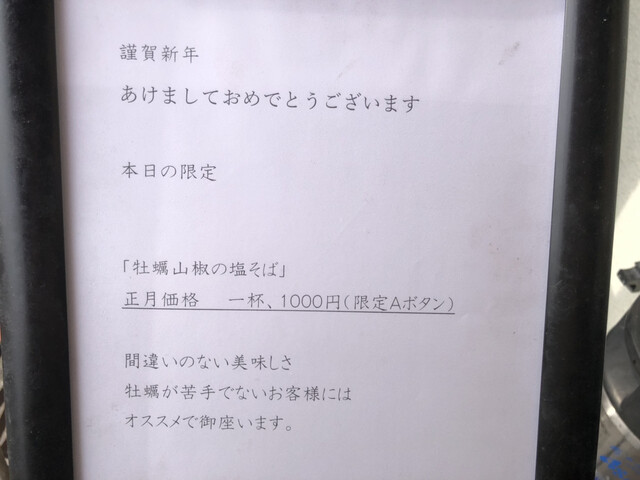 謹賀新年
あけましておめでとうございます
本日の限定
「牡蠣山椒の塩そば」
正月価格　一杯、1000円（限定Aボタン）
間違いのない美味しさ
牡蠣が苦手でないお客様には
オススメで御座います。